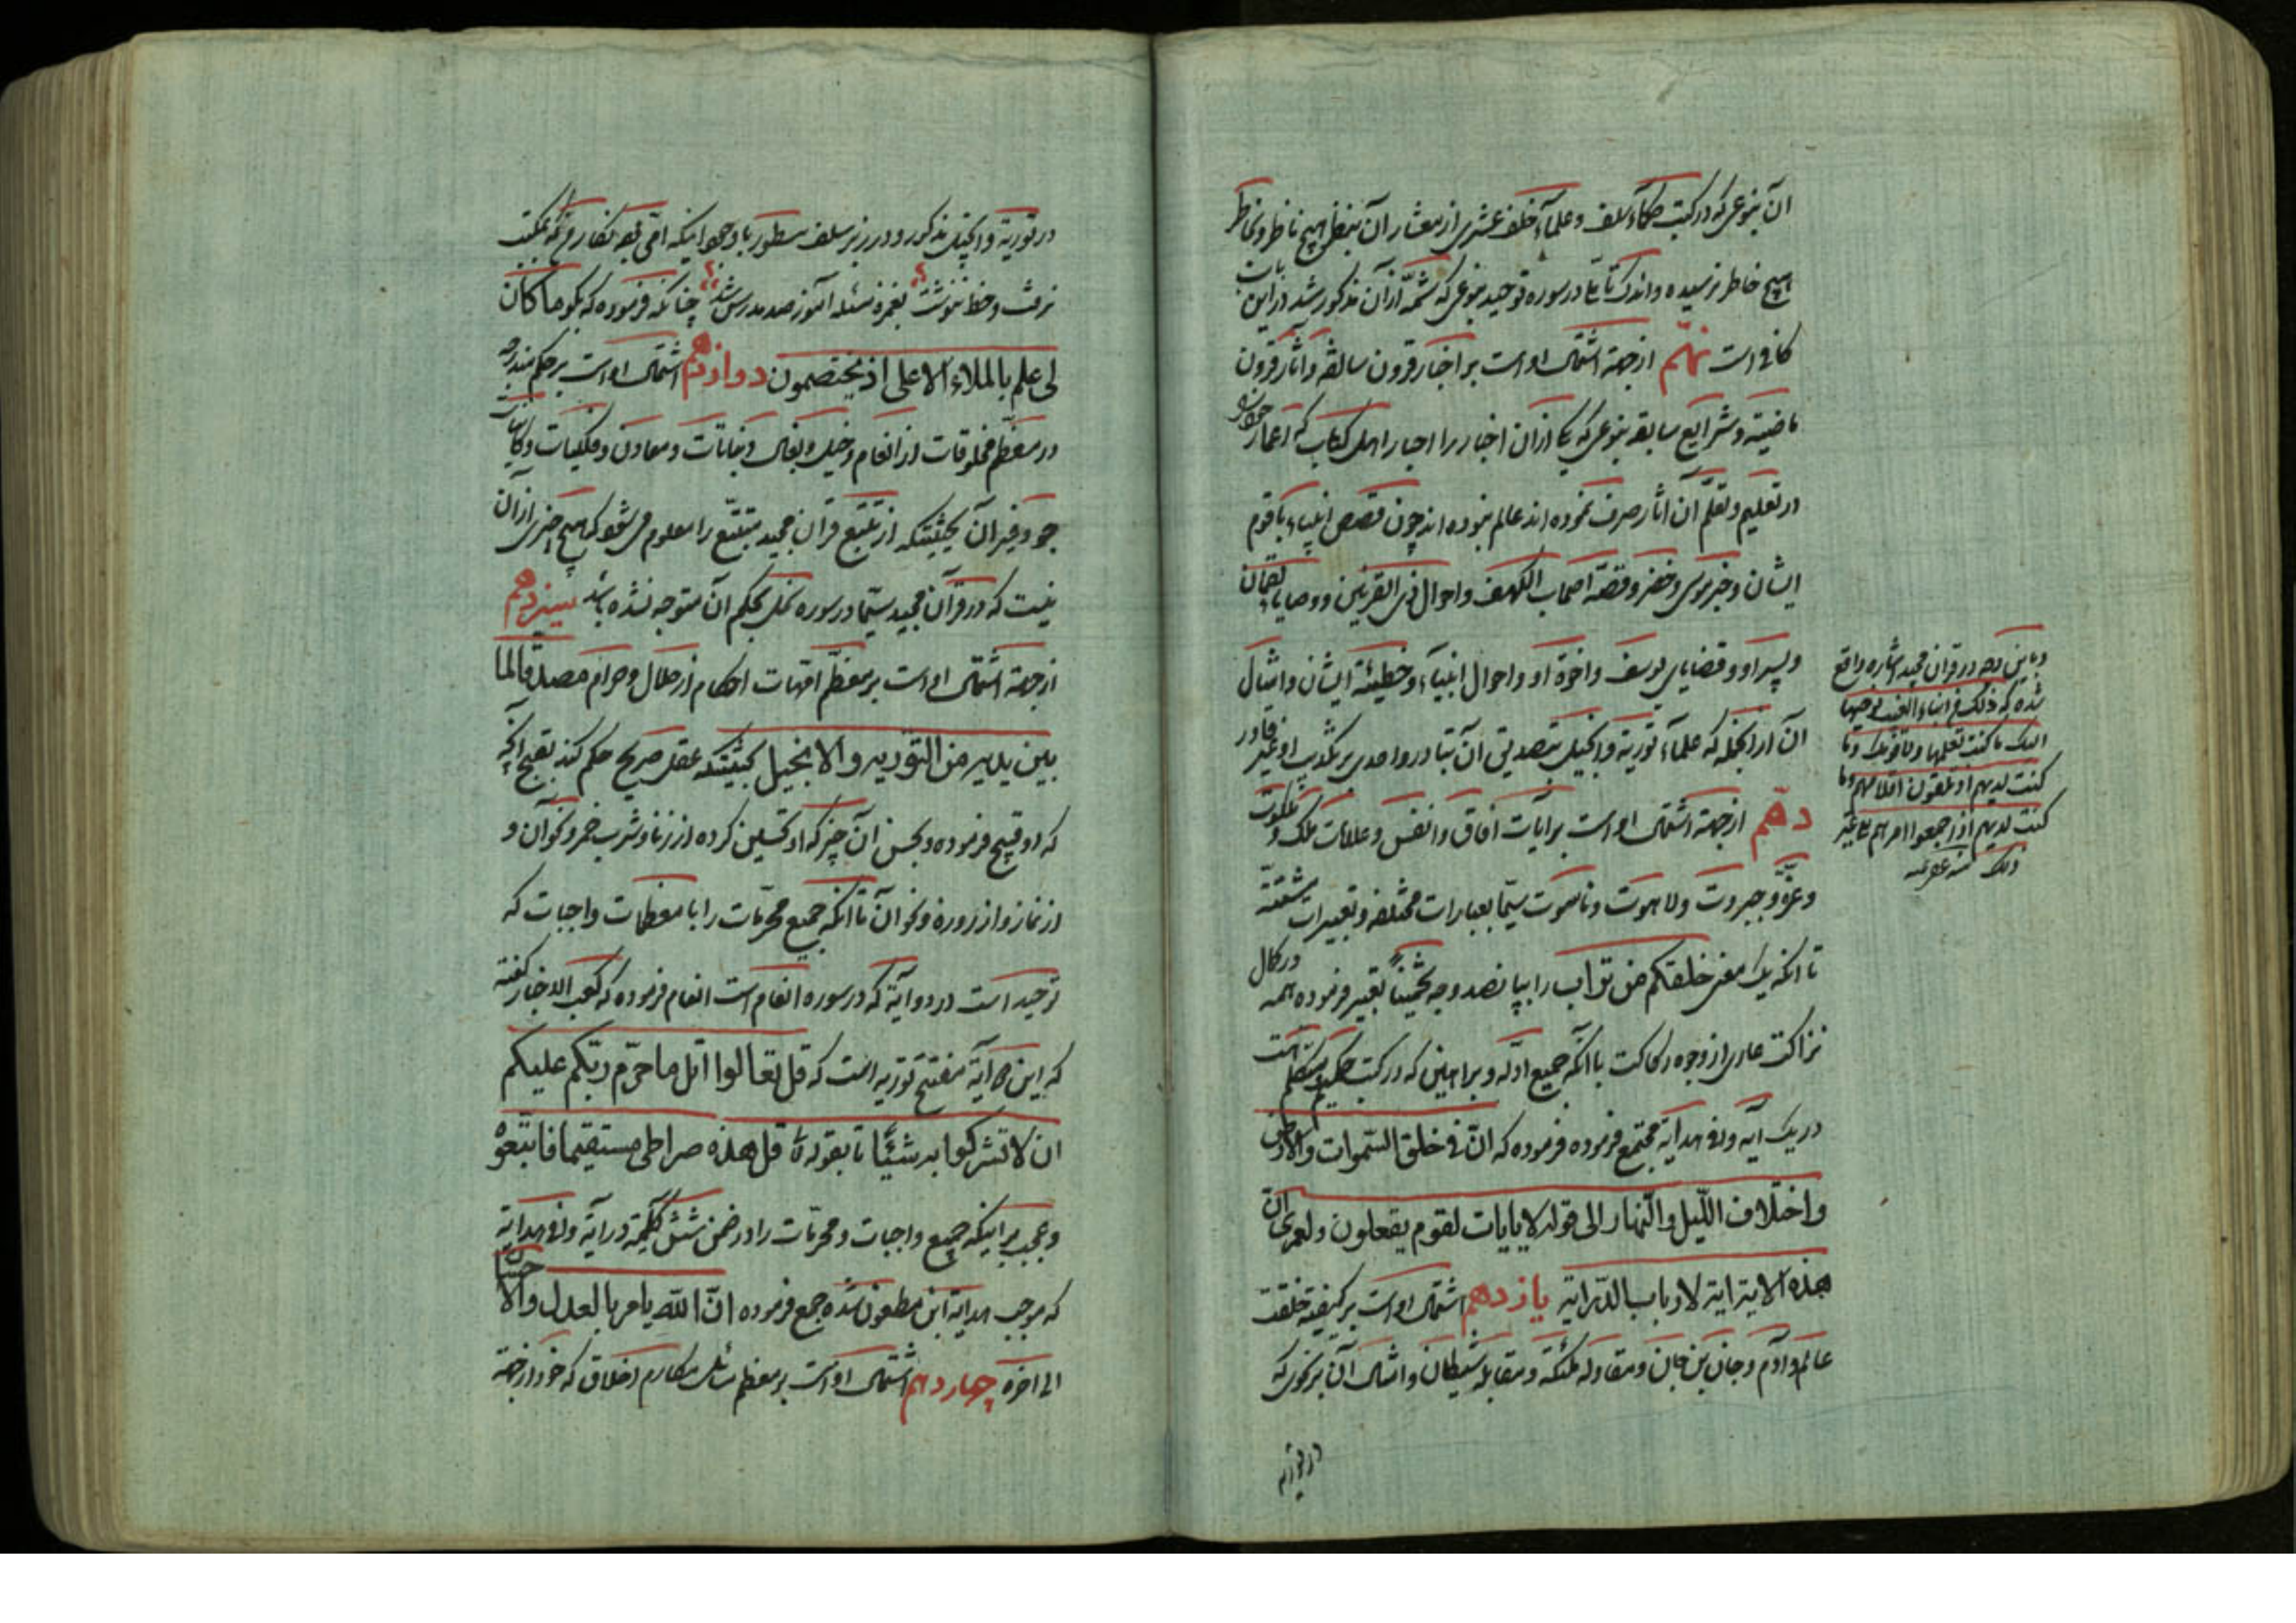 آن بنوعی که در کتب حکماء سلف و علماء خلف عشری از معشار آن بنظر هیچ ناظر و بخاطر
هیچ خاطر نرسیده و اندک تأملی در سوره توحید بنوعی که شمه از آن مذکور شد در این باب
کافی است نهم از جهة اشتمال او است بر اخبار قرون سالفه و آثار قرون
ماضیه و شرایع سابقه بنوعی که یک از آن اخبار را احبار اهل کتاب که اعمار خود را
در تعلیم و تعلم آن آثار صرف نموده اند عالم نبوده اند چون قصص انبیاء با قوم
ایشان و خبر موسی و خضر و قصه اصحاب الکهف و احوال ذی القرنین و وصایای لقمان
و پسر او و قضایای یوسف و اخوة او و احوال انبیاء و خطیئة ایشان و امثال
آن از آنجمله که علماء توریة و انجیل بتصدیق آن و احدی بر تکذیب او غیر قادر
دهم از جهة اشتمال او است بر آیات آفاق و انفس و علامات ملک و ملکوت
و عزّ و جبروت و لاهوت و ناسوت سیّما بعبارات مختلفه و تعبیرات متشتته
تا آنکه یک معنی خلقکم من تراب را بپانصد وجه تخمیناً تعبیر فرموده همه در کمال
نزاکت عاری از وجوه رکاکت با آنکه جمیع ادلّه و براهین که در کتب حکیم و متکلم است
در یک آیه وافی هدایه مجتمع فرموده فرموده که انّ فی خلق السّموات والارض
واختلاف اللّیل والنّهار الی قوله لایایات لقوم یعقلون ولعمری انّ
هذه الایة ایة لارباب الدّرایة یازدهم اشتمال او است بر کیفیّة خلقت
عالم و آدم و جان بن جان و مقاوله ملئکة و مقابله شیطان و امثال آن بر نحوی که
در توریة
و باین وجه در قرآن مجید اشاره واقع
شده که ذلک من انباء الغیب نوحیها
الیک ما کنت تعلمها ولا قومک وما
کنت لدیهم اذ یلقون اقلامهم وما
کنت لدیهم اذ اجمعوا امرهم الی غیر
ذلک منه عفی عنه
در توریة و انجیل مذکور و در زبر سلف مسطور با وجود اینکه امّی بود نگار من که بمکتب
نرفت و خط ننوشت بغمزه مسئله آموز صد مدرس شد چنانکه فرموده که بگو ما کان
لی علم بالملاء الاعلی اذ یختصمون دوازدهم اشتمال او است بر حکم مندرجه
در معظم مخلوقات از انعام و خیل و بغال و نباتات و معادن و فلکیات و کاینات
جو و غیر آن بحیثیتیکه از تتبّع قرآن مجید متتبّع را معلوم می شود که هیچ چیزی از آن
نیست که در قرآن مجید سیّما در سوره نحل بحکم آن متوجه نشده باشد سیزدهم
از جهة اشتمال او است بر معظم امّهات احکام از حلال و حرام مصدّقا لما
بین یدیه من التّوریه والانجیل بحیثیتیکه عقل صریح حکم کند بقبح آنچه
که او قبیح فرموده و بحسن آن چیز که او تحسین کرده از زنا و شرب خمر و نحو آن و
از نماز و از روزه و نحو آن تا آنکه جمیع محرّمات را با معظمات واجبات که
توحید است در دو آیة که در سوره انعام است انعام فرموده که کعب الاحبار گفته
که این آیة مفتتح توریه است که قل تعالوا اتل ما حرّم ربّکم علیکم
ان لا تشرکوا به شیئًا تا بقوله قل هذه صراطی مستقیما فاتّبعوه
و عجب بر اینکه جمیع واجبات و محرّمات را در ضمن شش کلمه در آیة وافی هدایة
که موجب هدایة ابن مظعون شده جمع فرموده انّ اللّه یامر بالعدل والاحسان
الی آخره چهاردهم اشتمال او است بر معظم مکارم اخلاق که خود از جهة